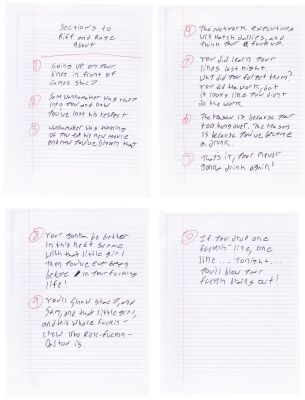 Sections to
Riff and Rage
about
① Going up on your
lines in front of
James Stacy
② Sam Wanamaker was that
into you and now
you've lost his respect.
③ Wanamaker was thinking
of you for his new movie
and now you've blown that
④ The Network executives
will watch dailies, and
think your a fuck up.
⑤ You did learn your
lines last night.
Why did you forget them?
You did the work, but
it looks like you didn't
do the work.
⑥ The reason is because your
too hung over. The reason
is because you've become
a drunk.
⑦ That's it, your never
gonna drink again!
⑧ Your gonna be better
in this next scene
with that little girl
then you've ever been
before in your fucking
life!
⑨ You'll show Stacy, and
Sam, and that little girl,
and this whole fuckin-
crew who Rick-fuckin-
Dalton is.
⑩ If you drop one
fuckin-line, one
line ... Tonight ...
You'll blow your
fuckin brains out!